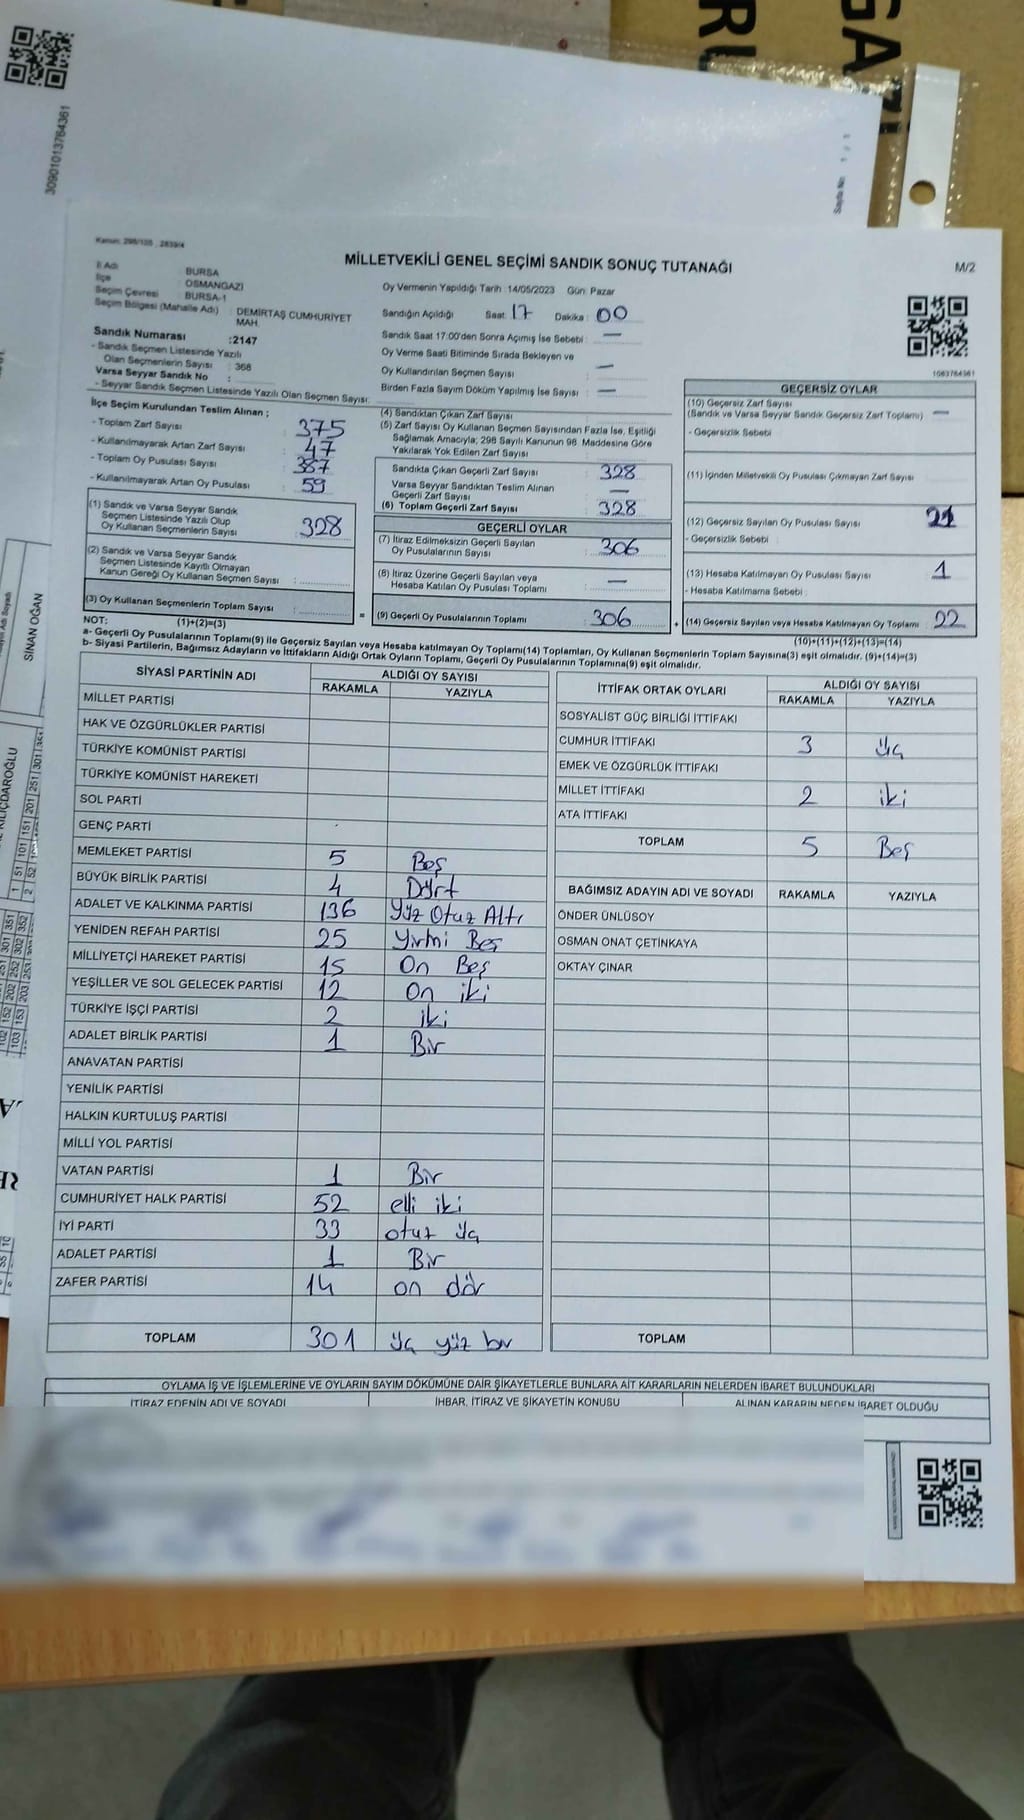 GAZİ
RU
30901013764361
Sayfa No 1 / 1
Kanun: 298/105 , 2839/4
MİLLETVEKİLİ GENEL SEÇİMİ SANDIK SONUÇ TUTANAĞI
M/2
İl Adı : BURSA
İlçe : OSMANGAZİ
Seçim Çevresi : BURSA-1
Seçim Bölgesi (Mahalle Adı) : DEMİRTAŞ CUMHURİYET MAH.
Sandık Numarası :2147
- Sandık Seçmen Listesinde Yazılı
Olan Seçmenlerin Sayısı : 368
Varsa Seyyar Sandık No :
- Seyyar Sandık Seçmen Listesinde Yazılı Olan Seçmen Sayısı:
Oy Vermenin Yapıldığı Tarih :14/05/2023 Gün: Pazar
Sandığın Açıldığı Saat: 17 Dakika : 00
Sandık Saat 17:00'den Sonra Açımış İse Sebebi : —
Oy Verme Saati Bitiminde Sırada Bekleyen ve
Oy Kullandırılan Seçmen Sayısı : —
Birden Fazla Sayım Döküm Yapılmış İse Sayısı : —
İlçe Seçim Kurulundan Teslim Alınan ;
- Toplam Zarf Sayısı : 375
- Kullanılmayarak Artan Zarf Sayısı : 47
- Toplam Oy Pusulası Sayısı : 387
- Kullanılmayarak Artan Oy Pusulası : 59
(1) Sandık ve Varsa Seyyar Sandık
Seçmen Listesinde Yazılı Olup
Oy Kullanan Seçmenlerin Sayısı : 328
(2) Sandık ve Varsa Seyyar Sandık
Seçmen Listesinde Kayıtlı Olmayan
Kanun Gereği Oy Kullanan Seçmen Sayısı :
(3) Oy Kullanan Seçmenlerin Toplam Sayısı :
(4) Sandıktan Çıkan Zarf Sayısı :
(5) Zarf Sayısı Oy Kullanan Seçmen Sayısından Fazla İse, Eşitliği
Sağlamak Amacıyla; 298 Sayılı Kanunun 98. Maddesine Göre
Yakılarak Yok Edilen Zarf Sayısı :
Sandıkta Çıkan Geçerli Zarf Sayısı : 328
Varsa Seyyar Sandıktan Teslim Alınan
Geçerli Zarf Sayısı : —
(6) Toplam Geçerli Zarf Sayısı : 328
GEÇERLİ OYLAR
(7) İtiraz Edilmeksizin Geçerli Sayılan
Oy Pusulalarının Sayısı : 306
(8) İtiraz Üzerine Geçerli Sayılan veya
Hesaba Katılan Oy Pusulası Toplamı : —
= (9) Geçerli Oy Pusulalarının Toplamı : 306 +
GEÇERSİZ OYLAR
(10) Geçersiz Zarf Sayısı
(Sandık ve Varsa Seyyar Sandık Geçersiz Zarf Toplamı) : —
- Geçersizlik Sebebi :
(11) İçinden Milletvekili Oy Pusulası Çıkmayan Zarf Sayısı :
(12) Geçersiz Sayılan Oy Pusulası Sayısı : 21
- Geçersizlik Sebebi :
(13) Hesaba Katılmayan Oy Pusulası Sayısı : 1
- Hesaba Katılmama Sebebi :
(14) Geçersiz Sayılan veya Hesaba Katılmayan Oy Toplamı : 22
NOT: (1)+(2)=(3) (10)+(11)+(12)+(13)=(14)
a- Geçerli Oy Pusulalarının Toplamı(9) ile Geçersiz Sayılan veya Hesaba katılmayan Oy Toplamı(14) Toplamları, Oy Kullanan Seçmenlerin Toplam Sayısına(3) eşit olmalıdır. (9)+(14)=(3)
b- Siyasi Partilerin, Bağımsız Adayların ve İttifakların Aldığı Ortak Oyların Toplamı, Geçerli Oy Pusulalarının Toplamına(9) eşit olmalıdır.
SİYASİ PARTİNİN ADI ALDIĞI OY SAYISI
RAKAMLA YAZIYLA
MİLLET PARTİSİ
HAK VE ÖZGÜRLÜKLER PARTİSİ
TÜRKİYE KOMÜNİST PARTİSİ
TÜRKİYE KOMÜNİST HAREKETİ
SOL PARTİ
GENÇ PARTİ
MEMLEKET PARTİSİ 5 Beş
BÜYÜK BİRLİK PARTİSİ 4 Dört
ADALET VE KALKINMA PARTİSİ 136 Yüz Otuz Altı
YENİDEN REFAH PARTİSİ 25 Yirmi Beş
MİLLİYETÇİ HAREKET PARTİSİ 15 On Beş
YEŞİLLER VE SOL GELECEK PARTİSİ 12 On iki
TÜRKİYE İŞÇİ PARTİSİ 2 iki
ADALET BİRLİK PARTİSİ 1 Bir
ANAVATAN PARTİSİ
YENİLİK PARTİSİ
HALKIN KURTULUŞ PARTİSİ
MİLLİ YOL PARTİSİ
VATAN PARTİSİ 1 Bir
CUMHURİYET HALK PARTİSİ 52 elli iki
İYİ PARTİ 33 otuz üç
ADALET PARTİSİ 1 Bir
ZAFER PARTİSİ 14 on dör
TOPLAM 301 üç yüz bir
İTTİFAK ORTAK OYLARI ALDIĞI OY SAYISI
RAKAMLA YAZIYLA
SOSYALİST GÜÇ BİRLİĞİ İTTİFAKI
CUMHUR İTTİFAKI 3 üç
EMEK VE ÖZGÜRLÜK İTTİFAKI
MİLLET İTTİFAKI 2 iki
ATA İTTİFAKI
TOPLAM 5 Beş
BAĞIMSIZ ADAYIN ADI VE SOYADI RAKAMLA YAZIYLA
ÖNDER ÜNLÜSOY
OSMAN ONAT ÇETİNKAYA
OKTAY ÇINAR
TOPLAM
OYLAMA İŞ VE İŞLEMLERİNE VE OYLARIN SAYIM DÖKÜMÜNE DAİR ŞİKAYETLERLE BUNLARA AİT KARARLARIN NELERDEN İBARET BULUNDUKLARI
İTİRAZ EDENİN ADI VE SOYADI İHBAR, İTİRAZ VE ŞİKAYETİN KONUSU ALINAN KARARIN NEDEN İBARET OLDUĞU
SİNAN OĞAN
KILIÇDAROĞLU